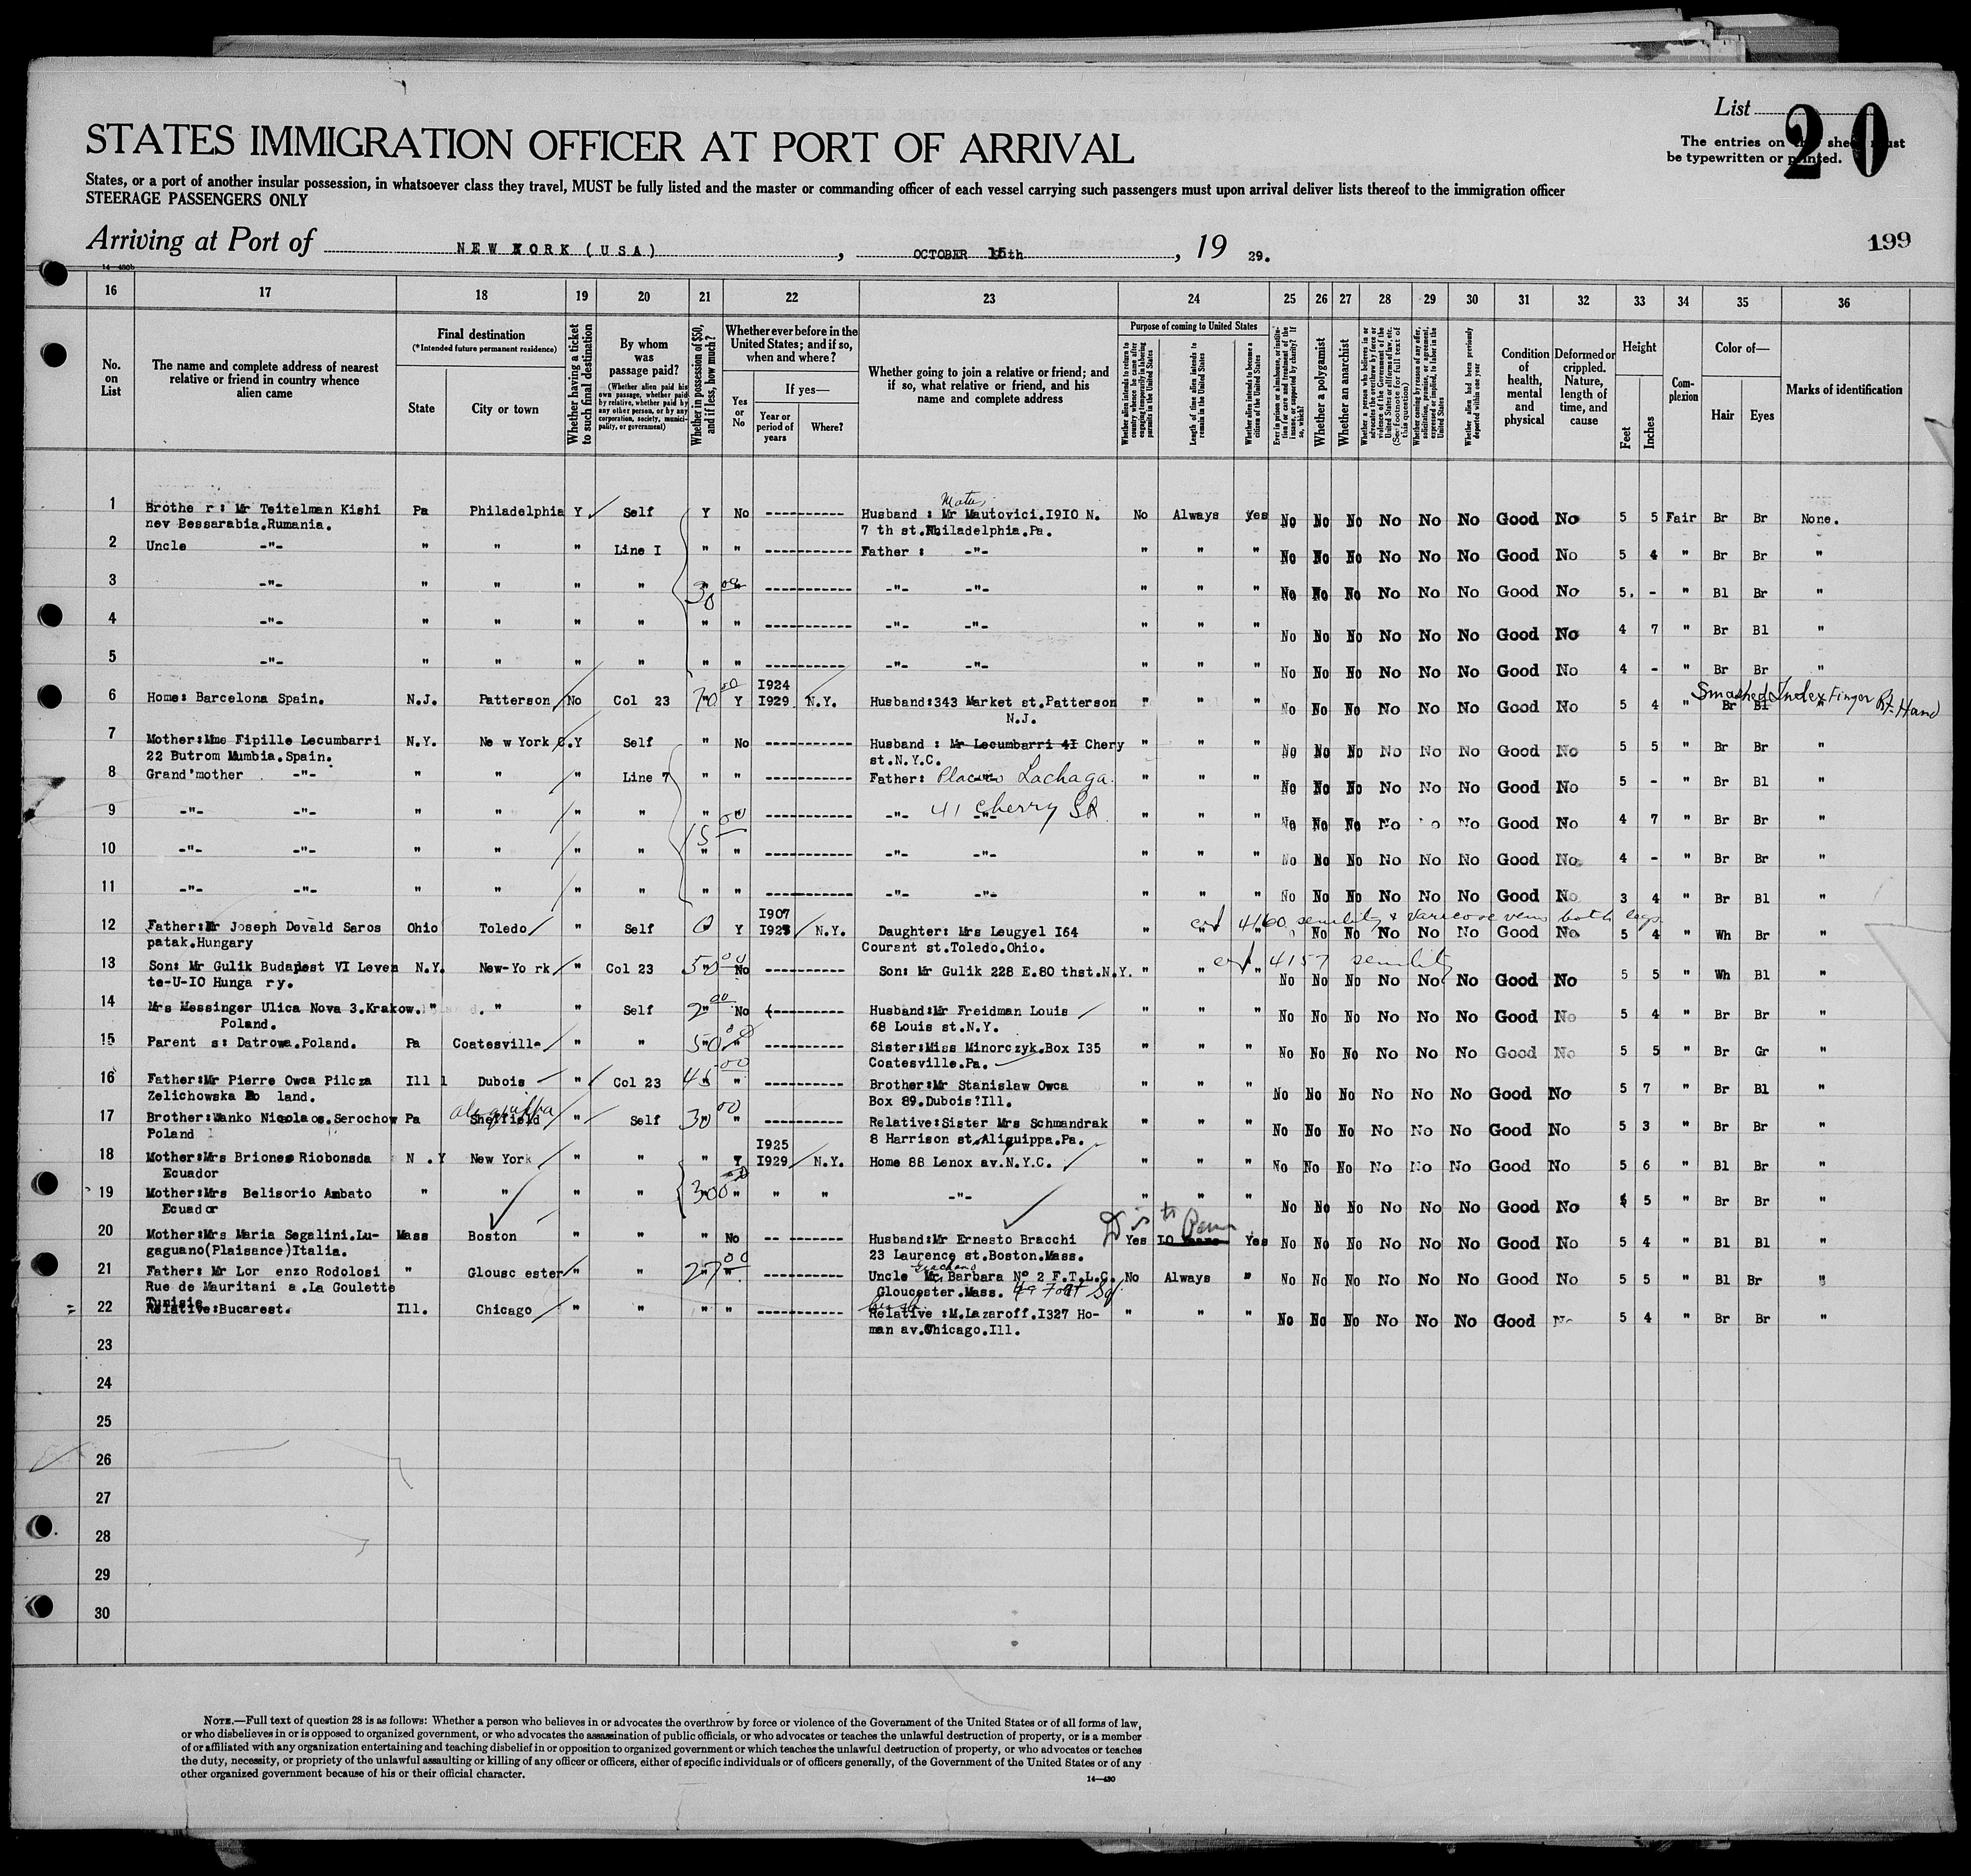 List 20
STATES IMMIGRATION OFFICER AT PORT OF ARRIVAL
The entries on sheet must
be typewritten or printed.
States, or a port of another insular possession, in whatsoever class they travel, MUST be fully listed and the master or commanding officer of each vessel carrying such passengers must upon arrival deliver lists thereof to the immigration officer
STEERAGE PASSENGERS ONLY
Arriving at Port of NEW YORK (USA), OCTOBER 15th, 19 29.
199
14-430b
16 17 18 19 20 21 22 23 24 25 26 27 28 29 30 31 32 33 34 35 36
No. on List
The name and complete address of nearest relative or friend in country whence alien came
Final destination
(*Intended future permanent residence)
State
City or town
Whether having a ticket to such final destination
By whom was passage paid?
(Whether alien paid his own passage, whether paid by relative, whether paid by any other person, or by any corporation, society, municipality, or government)
Whether in possession of $50, and if less, how much?
Whether ever before in the United States; and if so, when and where?
Yes or No
If yes—
Year or period of years
Where?
Whether going to join a relative or friend; and if so, what relative or friend, and his name and complete address
Purpose of coming to United States
Whether alien intends to return to country whence he came after engaging temporarily in laboring pursuits in the United States
Length of time alien intends to remain in the United States
Whether alien intends to become a citizen of the United States
Ever in prison or almshouse, or institution for care and treatment of the insane, or supported by charity? If so, which?
Whether a polygamist
Whether an anarchist
Whether a person who believes in or advocates the overthrow by force or violence of the Government of the United States or all forms of law, etc. (See footnote for full text of this question)
Whether coming by reason of any offer, solicitation, promise, or agreement, expressed or implied, to labor in the United States
Whether alien had been previously deported within one year
Condition of health, mental and physical
Deformed or crippled. Nature, length of time, and cause
Height
Feet
Inches
Complexion
Color of—
Hair
Eyes
Marks of identification
1 Brothe r: Mr Teitelman Kishi Pa Philadelphia Y Self Y No ----------- Husband : Mr Mautovici.I9I0 N. No Always Yes No No No No No No Good No 5 5 Fair Br Br None.
nev Bessarabia.Rumania. 7 th st.Philadelphia.Pa.
2 Uncle -"- " " " Line I " " ----------- Father : -"- " " " No No No No No No Good No 5 4 " Br Br "
3 -"- " " " " 30 00 " ----------- -"- -"- " " " No No No No No No Good No 5. - " Bl Br "
4 -"- " " " " " " ----------- -"- -"- " " " No No No No No No Good No 4 7 " Br Bl "
5 -"- " " " " " " ----------- -"- -"- " " " No No No No No No Good No 4 - " Br Br "
I924
6 Home: Barcelona Spain. N.J. Patterson No Col 23 70 00 Y I929 N.Y. Husband:343 Market st.Patterson " " " No No No No No No Good No 5 4 " Br Bl "
N.J.
Smashed Index Finger Rt. Hand
7 Mother:Mme Fipille Lecumbarri N.Y. Ne w York C.Y Self " No ----------- Husband : Mr Lecumbarri 4I Chery " " " No No No No No No Good No 5 5 " Br Br "
22 Butrom Mumbia.Spain. st.N.Y.C.
8 Grand'mother -"- " " " Line 7 " " ----------- Father: Lachaga. " " " No No No No No No Good No 5 - " Br Bl "
9 -"- -"- " " " " 15 00 " ----------- -"- 41 Cherry St -"- " " " No No No No No Good No 4 7 " Br Br "
10 -"- -"- " " " " " " ----------- -"- -"- " " " No No No No No No Good No 4 - " Br Br "
11 -"- -"- " " " " " " ----------- -"- -"- " " " No No No No No No Good No 3 4 " Br Bl "
I907 cert 4160 senility & varicose veins both legs
12 Father:Mr Joseph Dovald Saros Ohio Toledo " Self 0 Y N.Y. Daughter: Mrs Leugyel I64 " " " No No No No No Good No 5 4 " Wh Br "
patak.Hungary Courant st.Toledo.Ohio.
cert 4157 senility
13 Son: Mr Gulik Budapest VI Leven N.Y. New-Yo rk " Col 23 50 00 No ----------- Son: Mr Gulik 228 E.80 thst.N.Y. " " " No No No No No No Good No 5 5 " Wh Bl "
te-U-IO Hunga ry.
14 Mrs Messinger Ulica Nova 3.Krakow. " " Self 2 00 No ----------- Husband:Mr Freidman Louis " " " No No No No No No Good No 5 4 " Br Br "
Poland. 68 Louis st.N.Y.
15 Parent s: Datrowa.Poland. Pa Coatesville " " 50 00 " ----------- Sister:Miss Minorczyk.Box I35 " " " No No No No No No Good No 5 5 " Br Gr "
Coatesville.Pa.
16 Father:Mr Pierre Owca Pilcza Ill l Dubois " Col 23 45 00 " ----------- Brother:Mr Stanislaw Owca " " " No No No No No No Good No 5 7 " Br Bl "
Zelichowska Po land. Box 89.Dubois?Ill.
aliquippa
17 Brother:Wanko Nicolaos.Serochow Pa Sheffield " Self 30 00 " ----------- Relative:Sister Mrs Schmandrak " " " No No No No No No Good No 5 3 " Br Br "
Poland 8 Harrison st.Aliquippa.Pa.
I925
18 Mother:Mrs Briones Riobonsda N .Y New York " " " Y I929 N.Y. Home 88 Lenox av.N.Y.C. " " " No No No No No No Good No 5 6 " Bl Br "
Ecuador
19 Mother:Mrs Belisorio Ambato " " " " 300 00 " " " -"- " " " No No No No No No Good No 5 " Br Br "
Ecuador
20 Mother:Mrs Maria Segalini.Lu- Mass Boston " " " No -- -------- Husband:Mr Ernesto Bracchi Yes IO Years Yes No No No No No No Good No 5 4 " Bl Bl "
gaguano(Plaisance)Italia. 23 Laurence st.Boston.Mass.
21 Father: Mr Lor enzo Rodolosi " Glousc ester " " 27 00 " ----------- Uncle Mr Barbara N° 2 F.T.L.C. No Always " No No No No No No Good No 5 5 " Bl Br "
Rue de Mauritani a .La Goulette Gloucester.Mass.
Tunisie
22 Relative:Bucarest. Ill. Chicago " " " " ----------- Relative :M.Lazaroff.I327 Ho- " " " No No No No No No Good No 5 4 " Br Br "
man av.Chicago.Ill.
23
24
25
26
27
28
29
30
NOTE.—Full text of question 28 is as follows: Whether a person who believes in or advocates the overthrow by force or violence of the Government of the United States or of all forms of law,
or who disbelieves in or is opposed to organized government, or who advocates the assassination of public officials, or who advocates or teaches the unlawful destruction of property, or is a member
of or affiliated with any organization entertaining and teaching disbelief in or opposition to organized government or which teaches the unlawful destruction of property, or who advocates or teaches
the duty, necessity, or propriety of the unlawful assaulting or killing of any officer or officers, either of specific individuals or of officers generally, of the Government of the United States or of any
other organized government because of his or their official character.
14—430